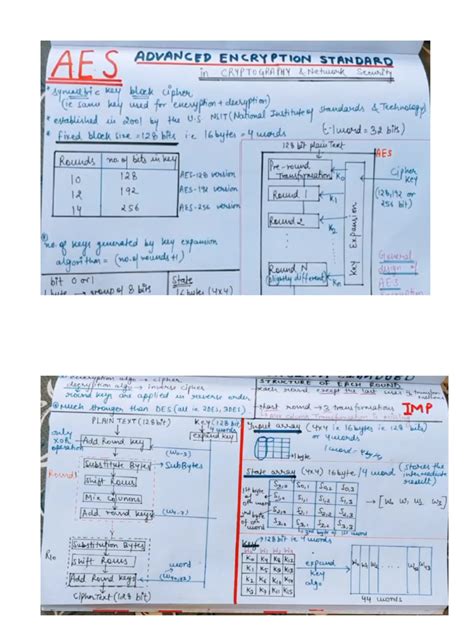 AES ADVANCED ENCRYPTION STANDARD
in CRYPTOGRAPHY & Network Security
* symmetric key block cipher
(ie same key used for encryption & decryption)
* established in 2001 by the U.S NSIT (National Institute of standards & Technology)
* fixed block size = 128 bits i.e 16 bytes = 4 words
(∵ 1 word = 32 bits)
Rounds no. of bits in key
10 128 AES-128 version
12 192 AES-192 version
14 256 AES-256 version
no. of keys generated by key expansion
algorithm = (no. of rounds + 1)
bit 0 or 1
1 byte → group of 8 bits
State
16 bytes (4x4)
128 bit plain Text
AES
Pre-round
Transformation
K0
Cipher
Key
(128, 192 or
256 bit)
Round 1
K1
Round 2
K2
Key Expansion
Round N
(slightly different)
Kn
General
design of
AES
encryption algo → cipher
decryption algo → inverse cipher
round keys are applied in reverse order
much stronger than DES (all in 2DES, 3DES)
STRUCTURE OF EACH ROUND
each round except the last uses
last round → 3 transformations
IMP
PLAIN TEXT (128 bit)
Key (128 bit
4 words
expand key
only
XOR
operation
Add Round key
(W0-3)
Round 1
Substitute Bytes → SubBytes
Shift Rows
Mix Columns
Add round key
R10
Substitution Bytes
Shift Rows
Add Round keys
word
Cipher Text (128 bit)
Input array (4x4 ie 16 bytes ie 128 bits)
or 4 words
1 word = 4 bytes
State array (4x4) 16 byte / 4 word (stores the
intermediate
result)
S0,0 S0,1 S0,2 S0,3
Key → 128 bit in 4 words
K0 K4 K8 K12
K1 K5 K9 K13
K2 K6 K10 K14
K3 K7 K11 K15
expand
key
algo
44 words